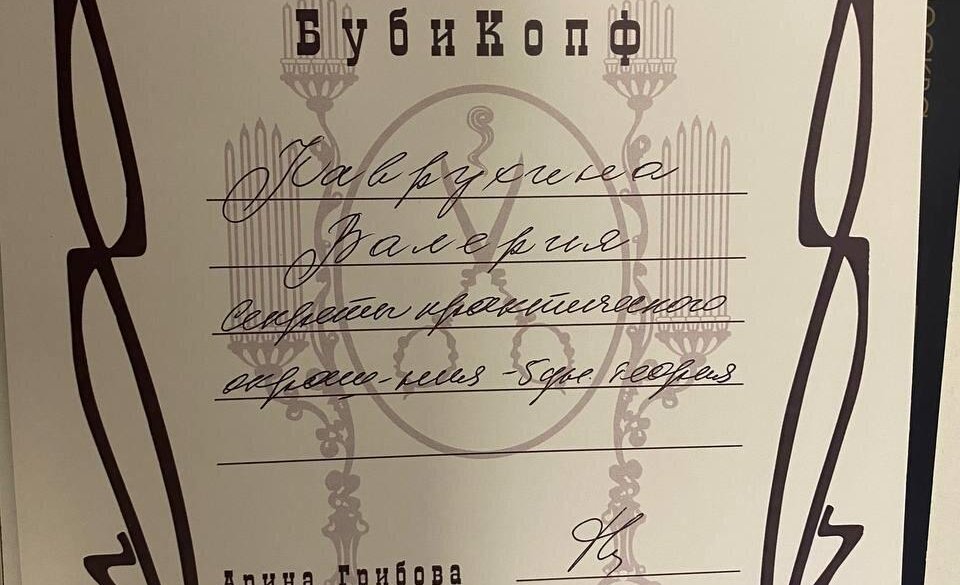 БубиКопф
Каврухина
Валерия
Секреты практического
окраш-ния - 5 дн. теория
Арина Грибова